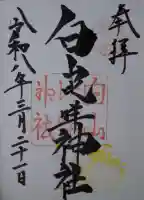 奉拝
白山比咩神社
令和八年三月二十一日